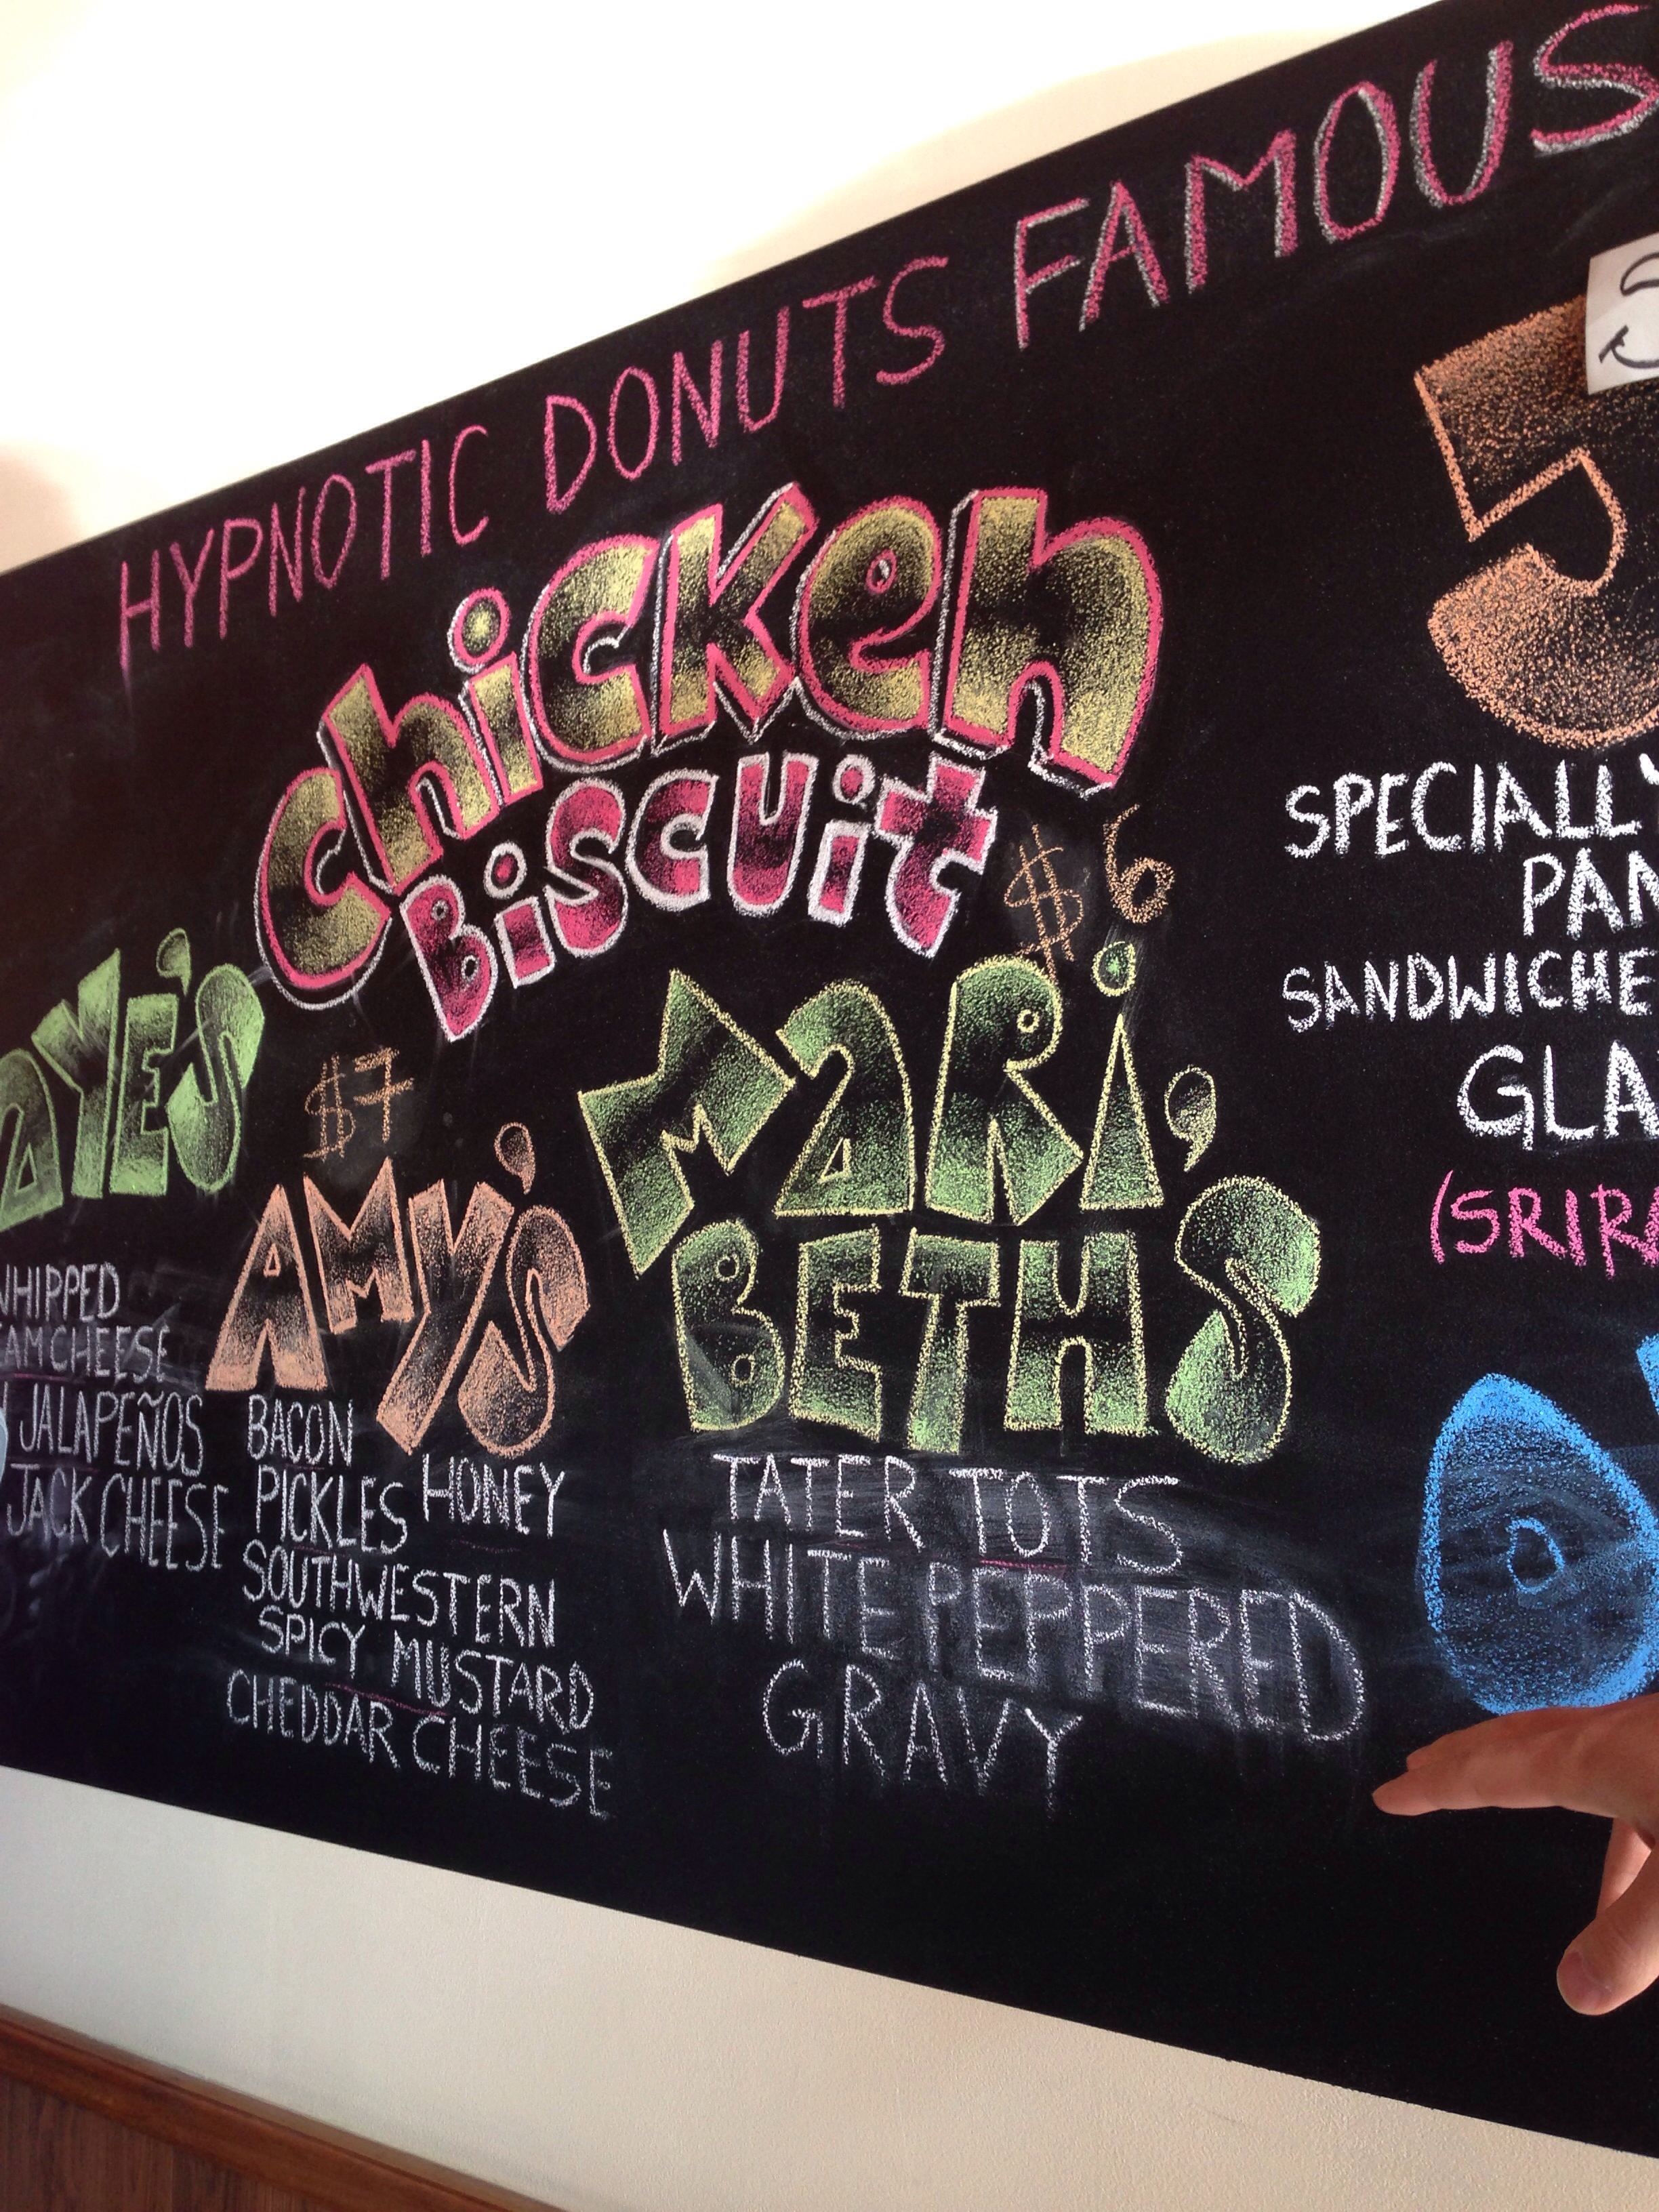 HYPNOTIC DONUTS FAMOUS
Chicken
Biscuit
$6
AYE'S
WHIPPED
AM CHEESE
JALAPEÑOS
JACK CHEESE
$7
AMY'S
BACON
PICKLES HONEY
SOUTHWESTERN
SPICY MUSTARD
CHEDDAR CHEESE
MARi'
BETHS
TATER TOTS
WHITE PEPPERED
GRAVY
5
SPECIALLY
PAN
SANDWICHE
GLA
(SRIRA